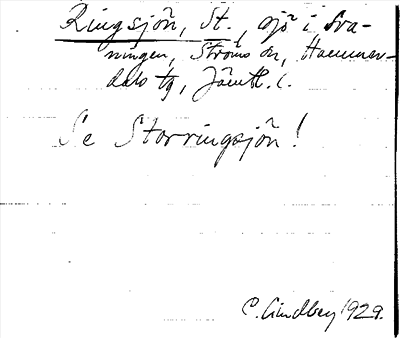 Ringsjön, St., sjö i Sva-
ningen, Ströms sn, Hammer-
dals tg, Jämtl. l.
Se Storringsjön!
C. Lindbey 1929.